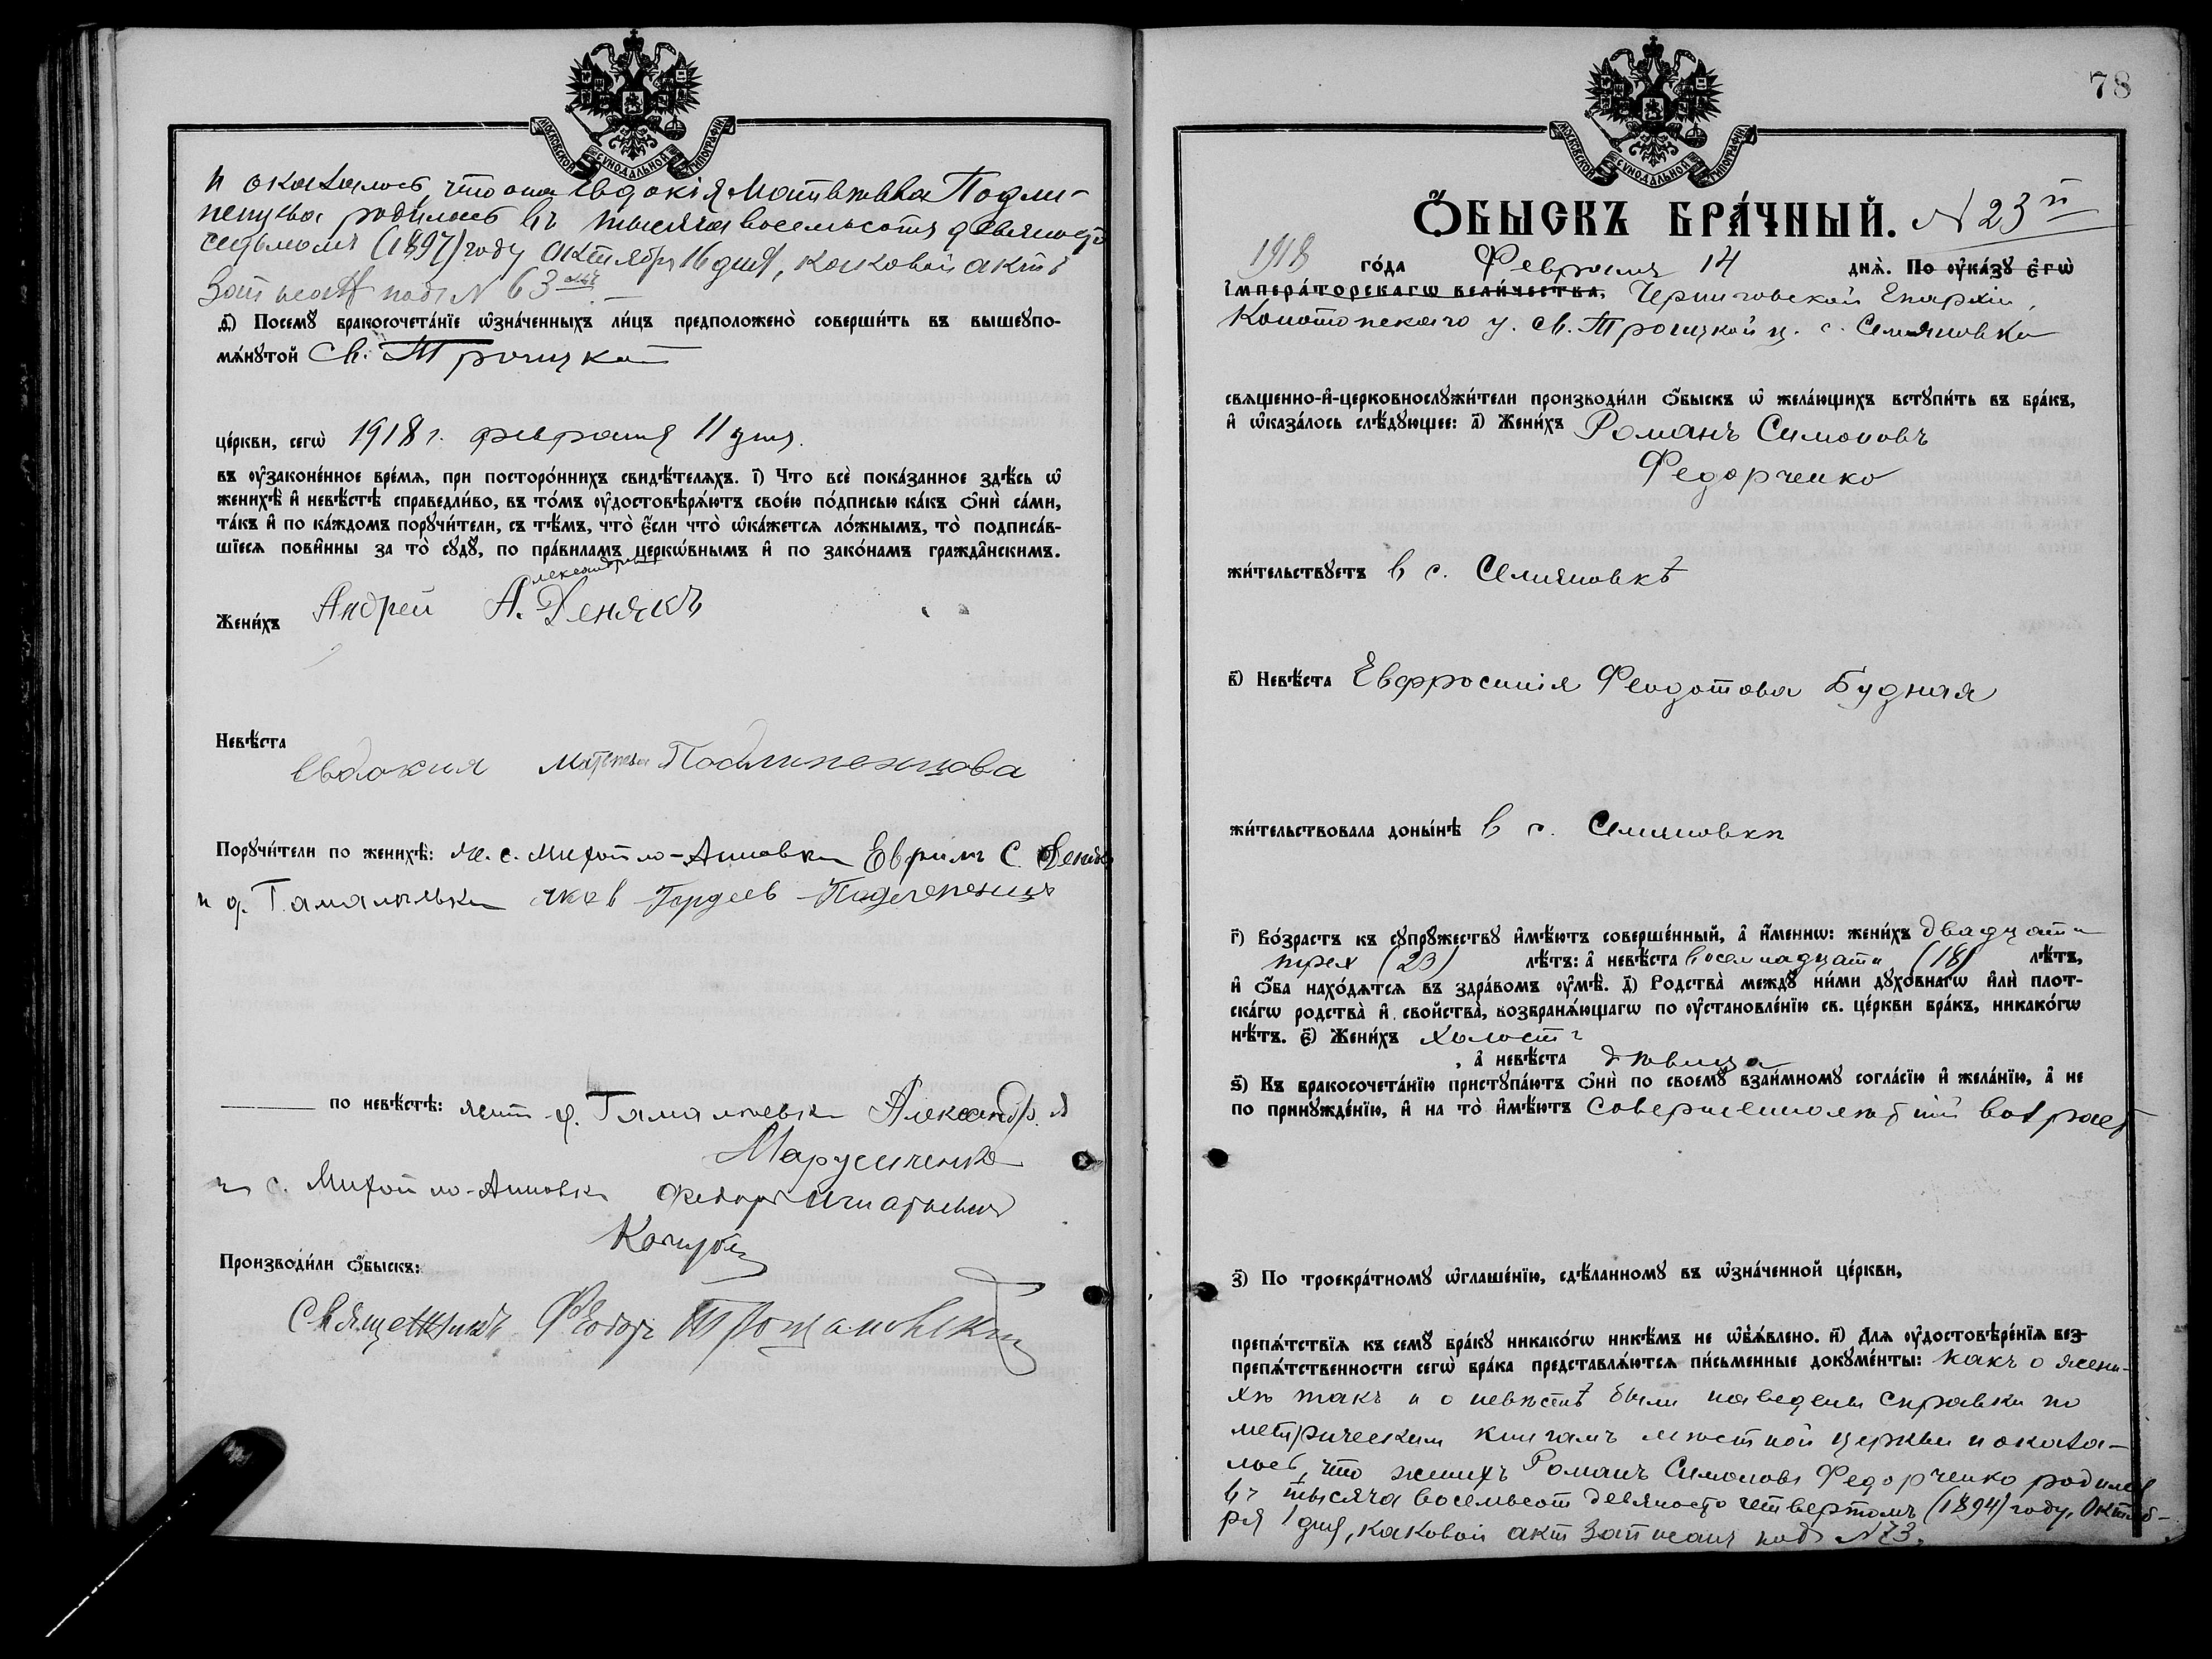 МОСКОВСКОЙ СѴНОДАЛЬНОЙ ТИПОГРАФІИ
и оказалось, что она Евдокія Матвѣевна Подли-
пенцева родилась въ тысяча восемьсотъ девяносто
седьмомъ (1897) году Октября 16 дня, каковой актъ
записанъ подъ N 63
д҃) Посемꙋ̀ бракосочета́нїе ѡ҆зна́ченныхъ ли́цъ предположено̀ соверши́ть въ вышеꙋпо-
мѧ́нꙋтой Св. Троицкой
це́ркви, сегѡ̀ 1918 г. февраля 11 дня.
въ ᲂу҆законе́нное вре́мѧ, при посторо́ннихъ свидѣ́телѧхъ. і҃) Что всѐ пока́занное здѣ́сь ѡ҆
женихѣ̀ и҆ невѣ́стѣ справедли́во, въ то́мъ ᲂу҆достовѣрѧ́ютъ свое́ю по́дписью ка́къ ѻ҆нѝ са́ми,
та́къ и҆ по ка́ждомъ порꙋчи́тели, съ тѣ́мъ, что̀ є҆́сли что̀ ѡ҆ка́жетсѧ ло́жнымъ, то̀ подписа́в-
шїесѧ пови́нны за то̀ сꙋдꙋ̀, по пра́виламъ церкѡ́внымъ и҆ по зако́намъ гражда́нскимъ.
Александровъ
Жени́хъ Андрей А. Денякъ
Невѣ́ста
Евдокия Матвѣева Подлипенцова
Порꙋчи́тели по женихѣ̀: ж. с. Михайло-Анновки Ефримъ С.
и д. Гамалѣевки Яков Гордеев
по невѣ́стѣ: жит. д. Гамалѣевки Александр. Я
Марусиченко
и с. Михайло-Анновки Федоръ Игнатьевич
Кочубей
Производи́ли ѻ҆́быскъ:
Священникъ Ѳеодоръ
78
МОСКОВСКОЙ СѴНОДАЛЬНОЙ ТИПОГРАФІИ
Ѻ҆́БЫСКЪ БРА́ЧНЫЙ. N 23й
1918 го́да Февраля 14 днѧ̀. По ᲂу҆ка́зꙋ є҆гѡ̀
і҆мпера́торскагѡ вели́чества, Черниговской Епархіи,
Конотопскаго у. Св. Троицкой ц. с. Семяновки
свѧщенно-и҆-церковнослꙋжи́тели производи́ли ѻ҆́быскъ ѡ҆ жела́ющихъ встꙋпи́ть въ бра́къ,
и҆ ѡ҆каза́лось слѣ́дꙋющее: а҃) Жени́хъ Романъ Симоновъ
Федорченко
жи́тельствꙋетъ в с. Семяновкѣ
в҃) Невѣ́ста Евфросинія Феодотова Будная
жи́тельствовала доны́нѣ в с. Семяновки
г҃) Во́зрастъ къ сꙋпрꙋ́жествꙋ и҆мѣ́ютъ соверше́нный, а҆ и҆́меннѡ: жени́хъ двадцати
трех (23) лѣ́тъ: а҆ невѣ́ста восемнадцати (18) лѣ́тъ,
и҆ ѻ҆́ба нахо́дѧтсѧ въ здра́вомъ ᲂу҆мѣ̀. д҃) Родства̀ междꙋ̀ ни́ми дꙋхо́внагѡ и҆лѝ плот-
ска́гѡ родства̀ и҆ свойства̀, возбранѧ́ющагѡ по ᲂу҆становле́нїю св. це́ркви бра́къ, никако́гѡ
нѣ́тъ. є҃) Жени́хъ холостъ
, а҆ невѣ́ста дѣвица
ѕ҃) Къ бракосочета́нїю пристꙋпа́ютъ ѻ҆нѝ по своемꙋ̀ взаи́мномꙋ согла́сїю и҆ жела́нїю, а҆ не
по принꙋжде́нїю, и҆ на то̀ и҆мѣ́ютъ совершеннолѣтній возраст
з҃) По троекра́тномꙋ ѡ҆глаше́нїю, сдѣ́ланномꙋ въ ѡ҆зна́ченной це́ркви,
препѧ́тствїѧ къ семꙋ̀ бра́кꙋ никако́гѡ никѣ́мъ не ѡ҆б̾ѧ́влено. и҃) Длѧ ᲂу҆достовѣре́нїѧ без-
препѧ́тственности сегѡ̀ бра́ка представлѧ́ютсѧ пи́сьменные докꙋме́нты: какъ о жени-
хѣ такъ и о невѣстѣ были наведены справки по
метрическим книгамъ мѣстной церкви и оказа-
лось, что женихъ Романъ Симоновъ Федорченко родился
въ тысяча восемьсот девяносто четвертомъ (1894) году, Октяб-
ря 1 дня, каковой акт записанъ подъ N 73.